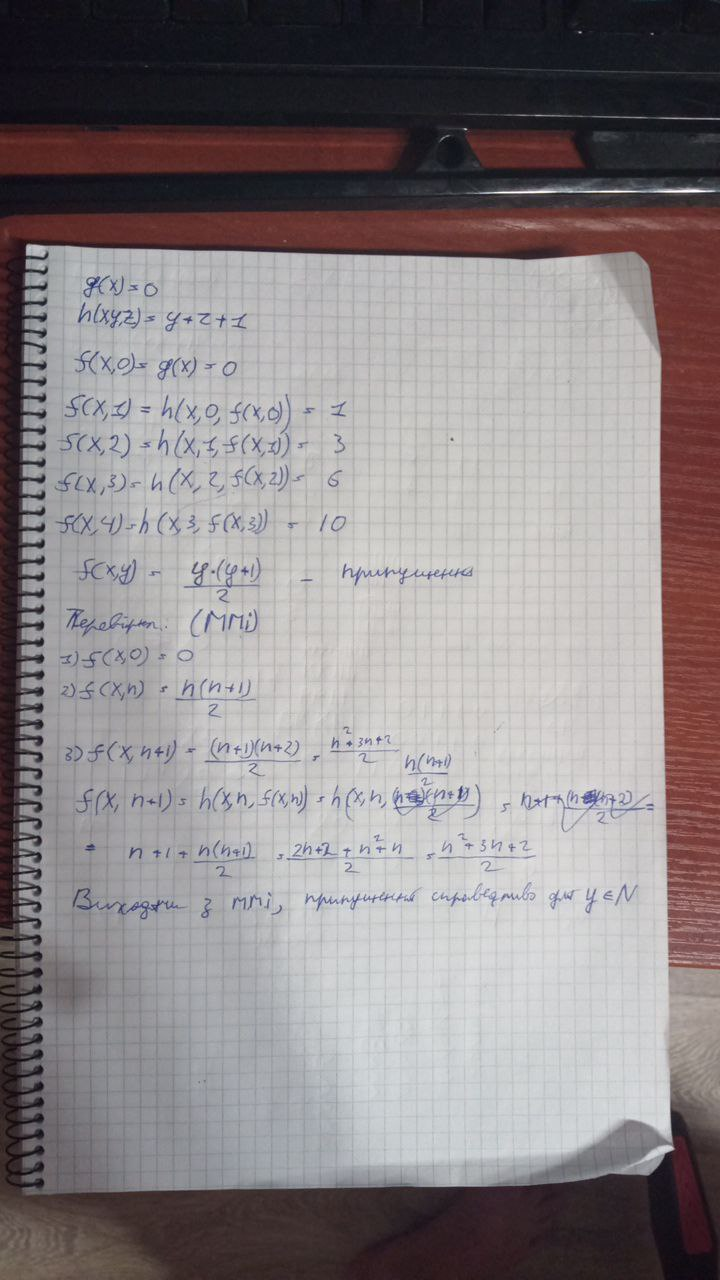 g(x)=0
h(x,y,z)= y+z+1
f(x,0)= g(x) = 0
f(x,1) = h(x,0, f(x,0)) = 1
f(x,2) = h(x,1, f(x,1)) = 3
f(x,3)= h(x, 2, f(x,2))= 6
f(x,4)=h(x,3, f(x,3)) = 10
f(x,y) = y·(y+1)/2 – припущення
Перевірка. (ММі)
1) f(x,0) = 0
2) f(x,n) = n(n+1)/2
3) f(x,n+1) = (n+1)(n+2)/2 = n²+3n+2/2
f(x, n+1) = h(x,n, f(x,n)) = h(x,n, n(n+1)/2) =
= n+1+ n(n+1)/2 = 2n+2+n²+n/2 = n²+3n+2/2
Виходячи з ММі, припущення справедливо для y∈N